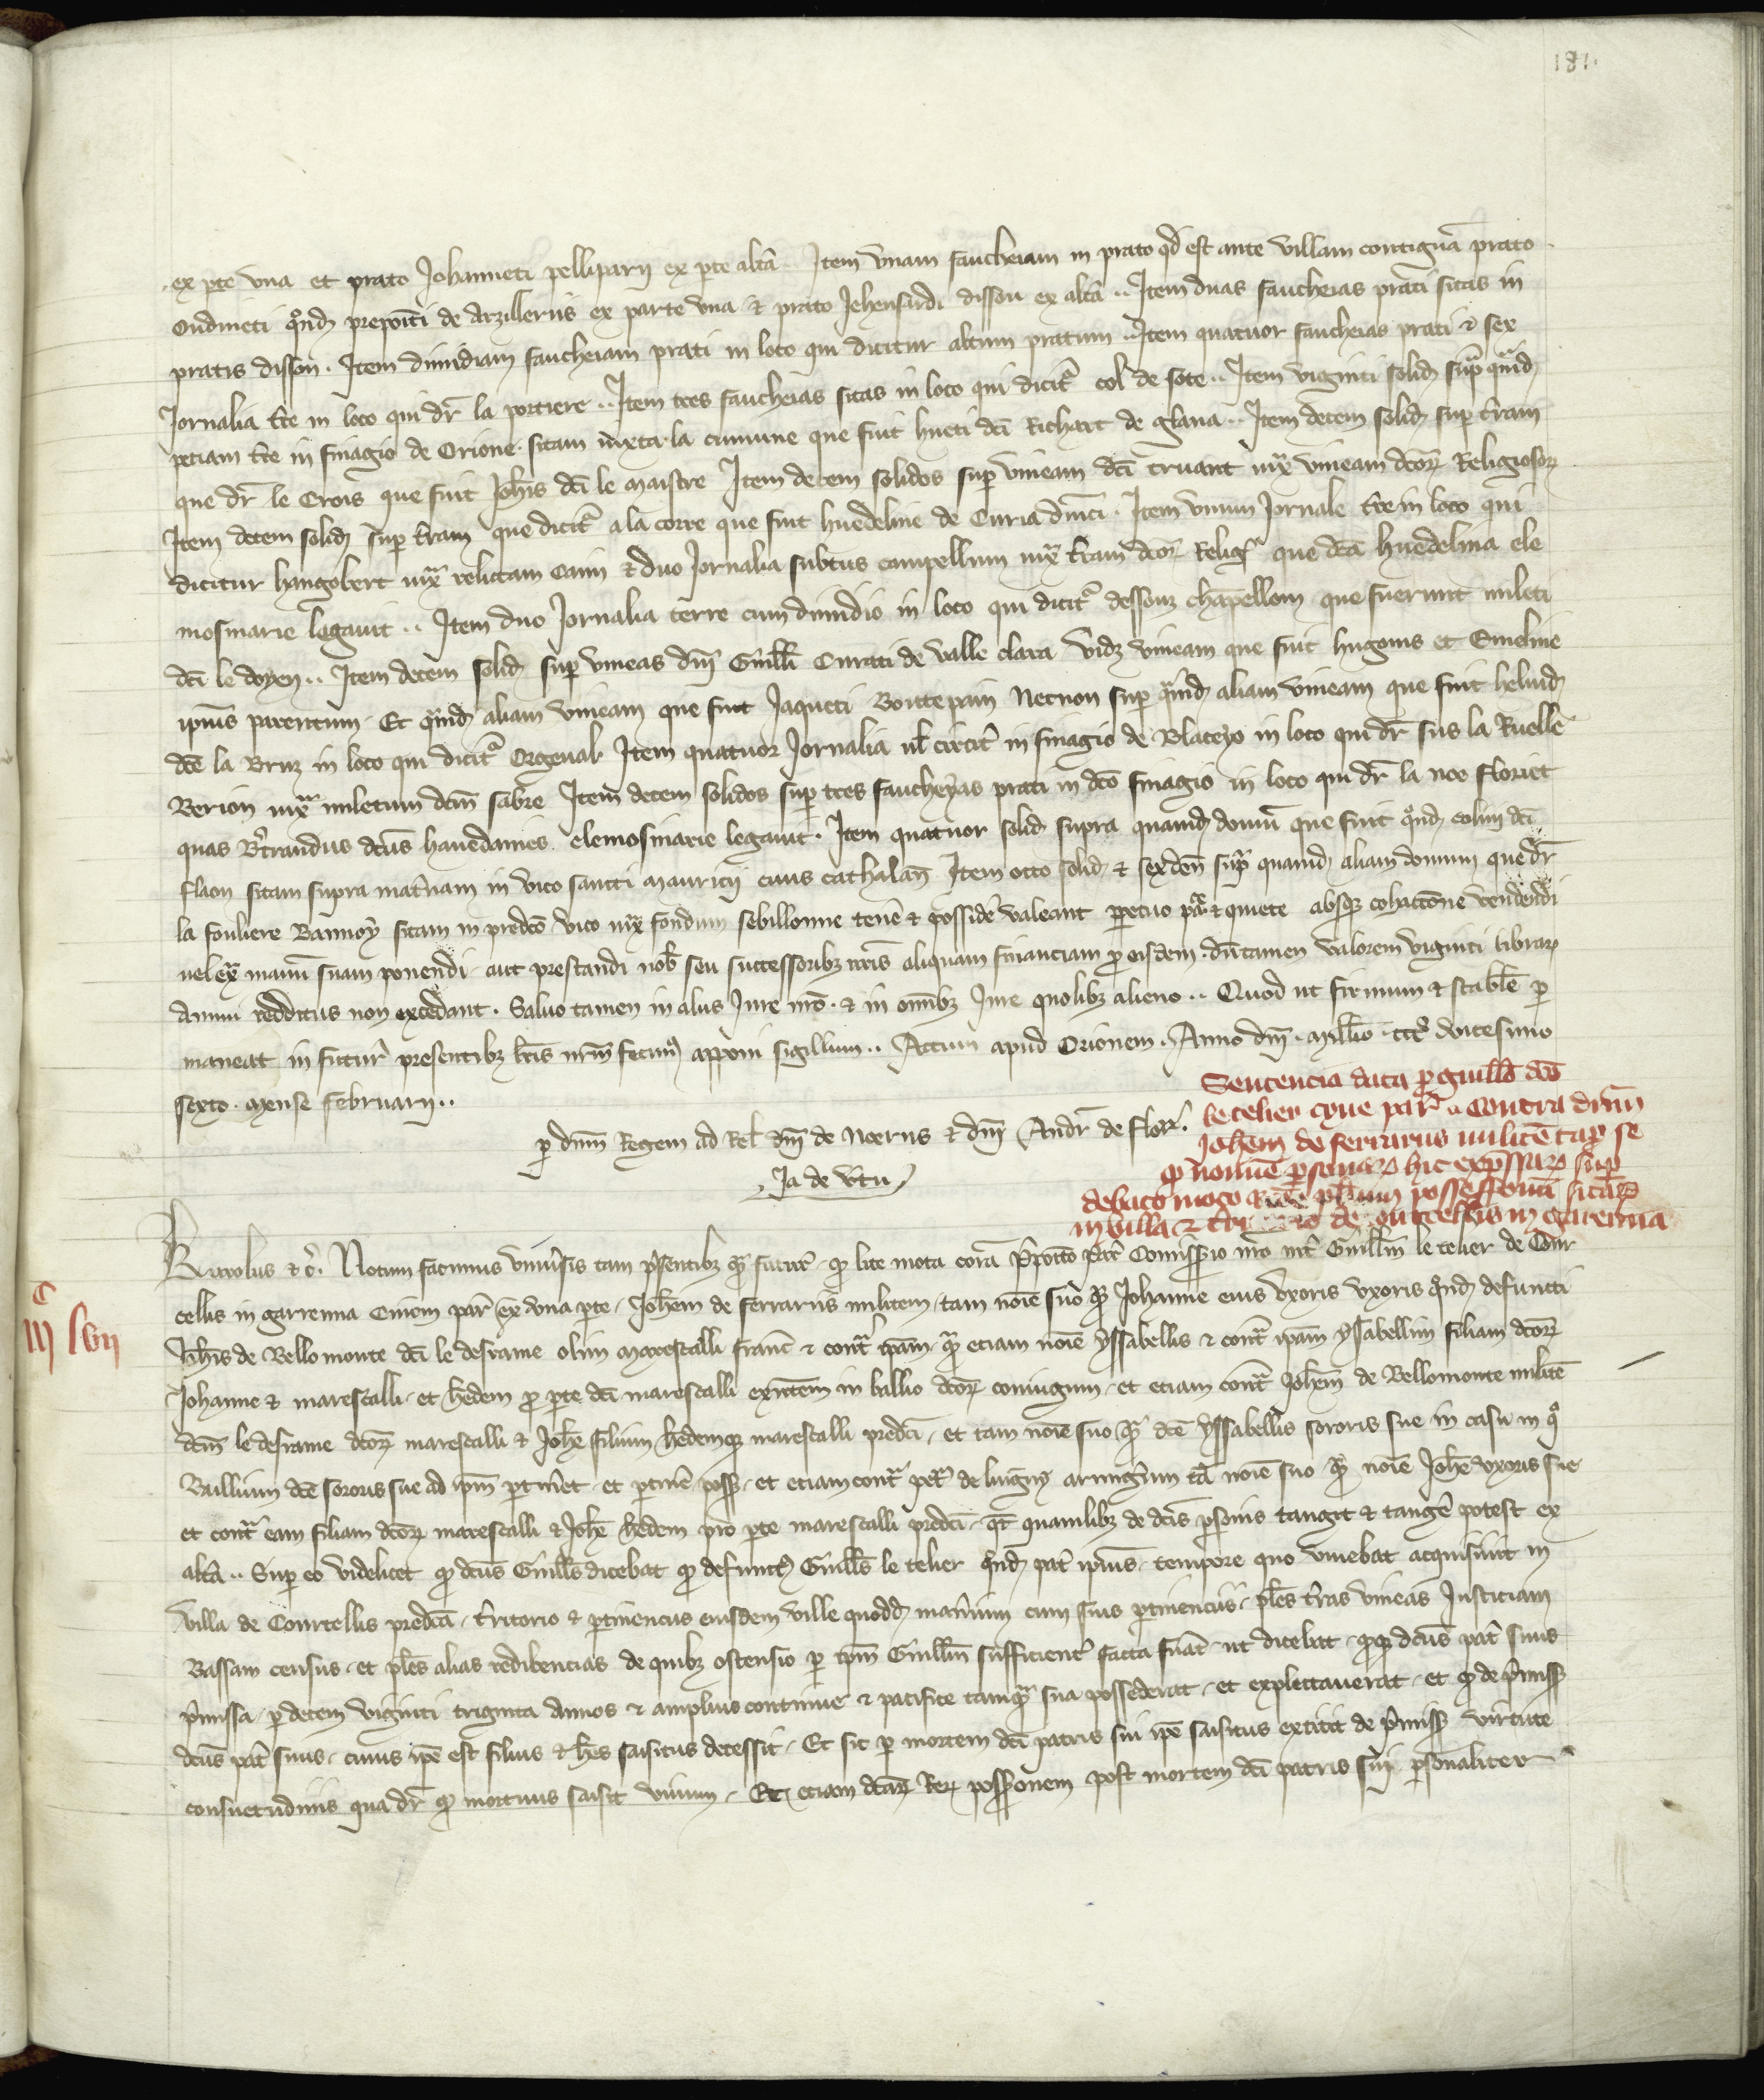 181.
ex pte una et prato Johanneti pelliparij ex pte altâ .. Item unam faucheiam in prato qd est ante villam contiguā prato
Oudineti qondꝫ prepoiti de Arzilleriis ex parte una & prato Jehensudi disson ex altâ .. Item duas faucheias prati sitas in
pratis disson . Item dimidiam faucheiam prati in loco qui dicitur altum pratum .. Item quatuor faucheias prati & sex
Jornalia tre in loco qui dr̄ la portiere .. Item tres faucheias sitas in loco qui dicit̉ col de sote .. Item viginti solidꝫ sup quandꝫ
petiam tre in finagio de Orione . sitam iuxta la cumune que fuit hueti dci Richart de glana .. Item decem solidꝫ sup tram
que dr̄ le Crois que fuit Johis dci le maistre Item decem solidos sup vineam dci truant iux vineam dcoꝝ Religiosoꝝ
Item decem solidꝫ sup tram que dicit̉ a la corre que fuit huedeline de Curia dnici . Item unum Jornale tre in loco qui
dicitur hangobert iux relictam Caim & duo Jornalia subtus campellum iux tram dcoꝝ Relig que dca huedelina ele
mosinarie legavit .. Item duo Jornalia terre cum dimidio in loco qui dicit̉ dessouz chapellom que fuerunt mileti
dci le doyen .. Item decem solidꝫ sup vineas dni Guilli Curati de valle clara vidꝫ vineam que fuit hugonis et Emeline
ipius parentum . Et quandꝫ aliam vineam que fuit Jaqueti Boutepain Necnon sup quandꝫ aliam vineam que fuit heluidꝫ
dce la Bruz in loco qui dicit̉ Orgeval . Item quatuor Jornalia vl circit in finagio de Blaceyo in loco qui dr̄ sus la Ruelle
Berion iux miletum dcm sabre Item decem solidos sup tres faucheyas prati in dco finagio in loco qui dr̄ la noe floriet
quas Btrandus dcus havedames elemosinarie legavit . Item quatuor solidꝫ supra quamdꝫ domū que fuit qondꝫ colini dci
flaon sitam supra matnam in vico sancti mauricij civis cathalan̄ Item octo solidꝫ & sex den̄ supra quamdꝫ aliam domum que dr̄
la fouliere Bannoy sitam in predco vico iux fondum sebillonne tene & posside valeant ppetuo pace & quiete absqꝫ cohactione vendendi
vel ex manu suam ponendi . aut prestandi nob seu successoribꝫ nris aliquam financiam p eisdem . dutamen valorem viginti libraꝝ
Annui redditus non excedant . Salvo tamen in aliis Jure nro . & in omibꝫ Jure quolibꝫ alieno .. Quod ut firmum & stable p
maneat in futur̉ presentibꝫ lris nrm fecimꝰ apponi sigillum .. Actum apud Orionem . Anno dni . millio . ccco vicesimo
sexto . mense februarij ..
p dnm Regem ad Rel dni de Noeriis & dni Andr̄ de flor.
Ja de vtu
Sentencia data p guillo dco
le telier cive par̉ .. Contra dnm
Johem de ferrariis militē tā p se
qꝫ noīne psonaꝝ hic expssaꝝ sup
debato moto pliū possessionū sitaꝝ
in villa & de courcellis in Garenna
c
iij lvij
Karolus &c̉. Notum facimus univsis tam psentibꝫ qꝫ futur̉ . qꝫ lite mota corā ppoito par̉ Comissario nro int Guillm̄ le telier de Cour
cellis in garrenna Civem par̉ ex una pte . Johem de ferrariis militem . tam noie suo qꝫ Johanne eius uxoris uxoris qondꝫ defuncti
Johis de Bello monte dci le desrame olim marescalli franc̄ & contra ipam . qꝫ etiam noie yssabellis & contra ipam yssabellim filiam dcoꝝ
Johanne & marescalli . et hedem p pte dci marescalli existem in ballio dcoꝝ coniugum . et etiam contra Johem de Bellomonte militē
dcm le desrame dcoꝝ marescalli & Johe filium hedemqꝫ marescalli predci . et tam noie suo qꝫ dce yssabellis sororis sue in casu in qo
Ballium dce sororis sue ad ipm ptinet . et ptine posset . et etiam contra petr̉ de lingnis armigum tā noie suo qꝫ noie Johe uxoris sue
et contra eam filiam dcoꝝ marescalli & Johe hedem pro pte marescalli predci . qr̄ quamlibꝫ de dcis psonis tangit & tange potest ex
altâ .. Sup eo videlicet qꝫ dcus Guills dicebat qꝫ defunctꝰ Guills le telier qondꝫ pat ipius . tempore quo vivebat acquisivit in
villa de Courcellis predcā . tritorio & ptinenciis eiusdem ville quoddꝫ maniium cum suis ptinenciis . ples tras vineas Justiciam
Bassam census . et ples alias redibencias de quibꝫ ostensio p ipm Guillm̄ sufficient facta fuat . ut dicebat . qꝫqꝫ dcus pat suus
pmissa . p decem viginti triginta Annos & amplius continue & pacifice tamqꝫ sua possederat . et explectaverat . et qꝫ de pmissꝫ
dcus pat suus . cuius ipe est filius & hes saisitus decessit . Et sic p mortem dci patris sui ipe saisitus extitit de pmissꝫ virtute
consuetudinis qua dr̄ qꝫ mortuus saisit vivum . Et etiam dcaꝝ Reꝝ possessionem post mortem dci patris sui psonaliter